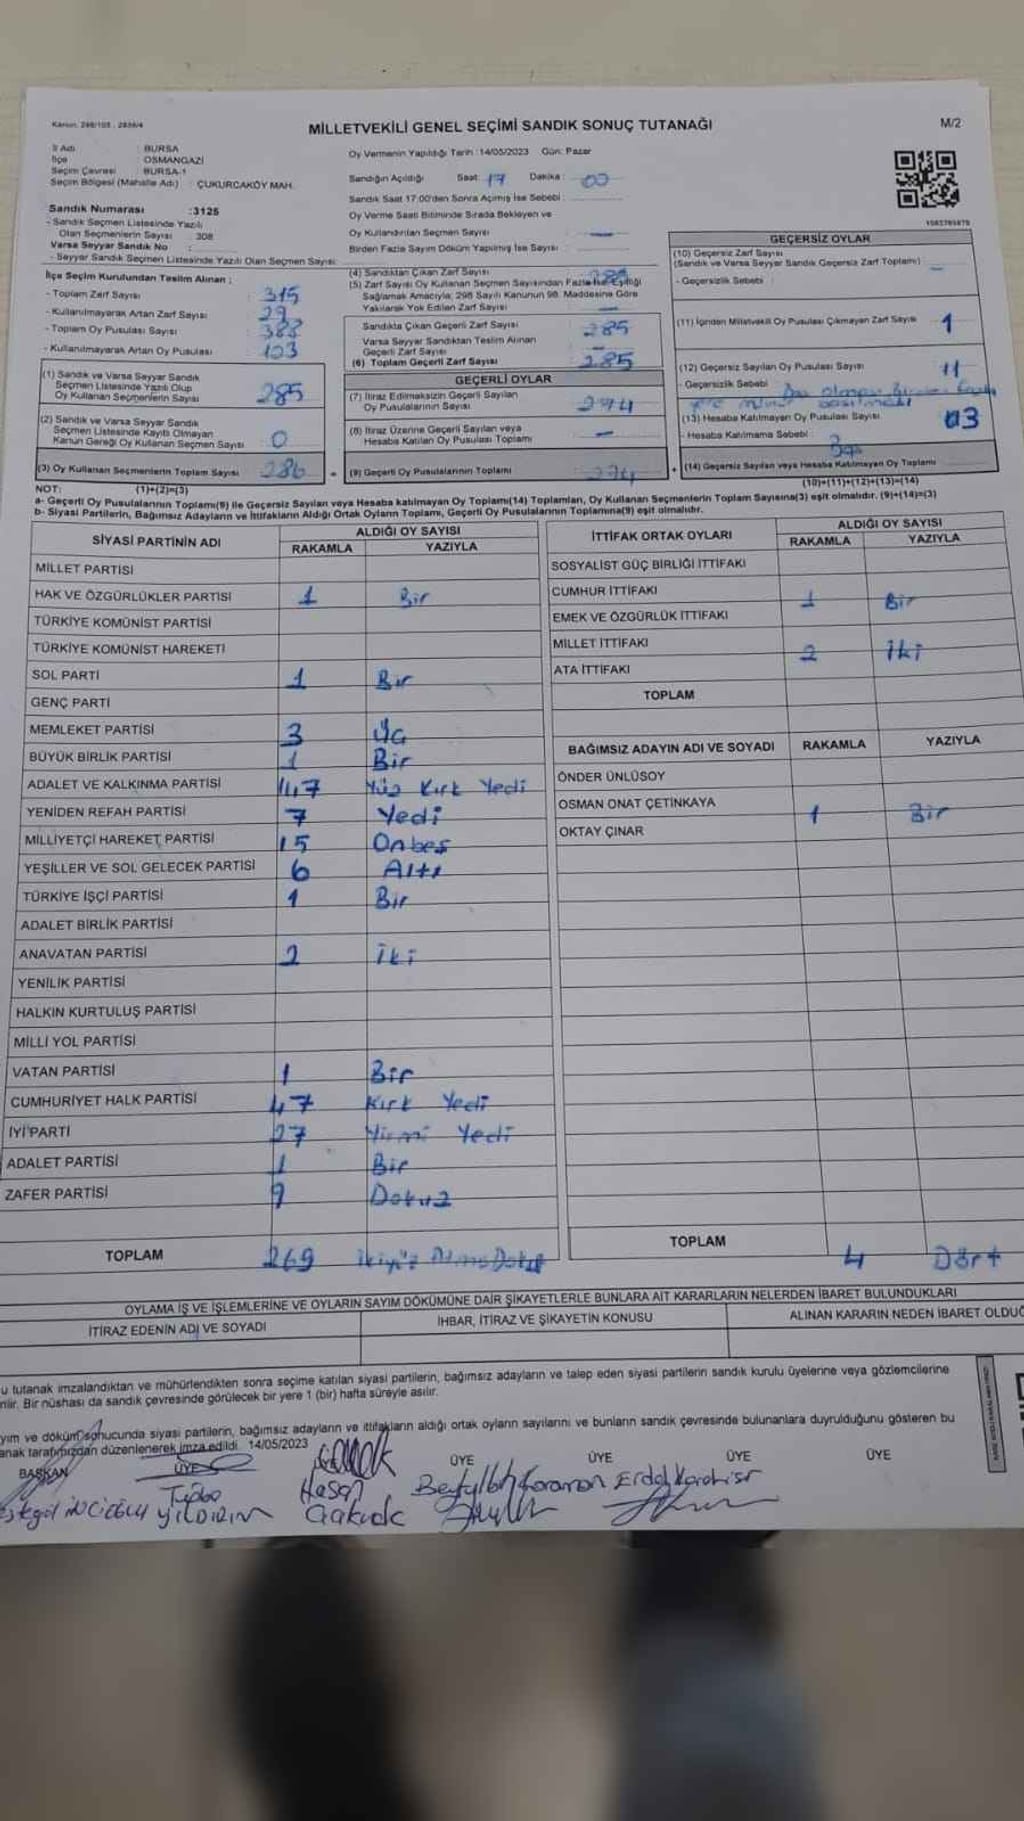 Kanun: 298/105 , 2839/4
MİLLETVEKİLİ GENEL SEÇİMİ SANDIK SONUÇ TUTANAĞI
M/2
İl Adı : BURSA
İlçe : OSMANGAZİ
Seçim Çevresi : BURSA-1
Seçim Bölgesi (Mahalle Adı) : ÇUKURCAKÖY MAH.
Sandık Numarası :3125
- Sandık Seçmen Listesinde Yazılı
Olan Seçmenlerin Sayısı : 308
Varsa Seyyar Sandık No :
- Seyyar Sandık Seçmen Listesinde Yazılı Olan Seçmen Sayısı:
Oy Vermenin Yapıldığı Tarih :14/05/2023 Gün: Pazar
Sandığın Açıldığı Saat: 17 Dakika : 00
Sandık Saat 17:00'den Sonra Açımış İse Sebebi :
Oy Verme Saati Bitiminde Sırada Bekleyen ve
Oy Kullandırılan Seçmen Sayısı : —
Birden Fazla Sayım Döküm Yapılmış İse Sayısı :
İlçe Seçim Kurulundan Teslim Alınan ;
- Toplam Zarf Sayısı : 315
- Kullanılmayarak Artan Zarf Sayısı : 29
- Toplam Oy Pusulası Sayısı : 388
- Kullanılmayarak Artan Oy Pusulası : 103
(1) Sandık ve Varsa Seyyar Sandık
Seçmen Listesinde Yazılı Olup
Oy Kullanan Seçmenlerin Sayısı : 285
(2) Sandık ve Varsa Seyyar Sandık
Seçmen Listesinde Kayıtlı Olmayan
Kanun Gereği Oy Kullanan Seçmen Sayısı : 0
(3) Oy Kullanan Seçmenlerin Toplam Sayısı : 286
(4) Sandıktan Çıkan Zarf Sayısı
(5) Zarf Sayısı Oy Kullanan Seçmen Sayısından Fazla İse Eşitliği
Sağlamak Amacıyla, 298 Sayılı Kanunun 98. Maddesine Göre
Yakılarak Yok Edilen Zarf Sayısı : —
Sandıkta Çıkan Geçerli Zarf Sayısı : 285
Varsa Seyyar Sandıktan Teslim Alınan
Geçerli Zarf Sayısı : —
(6) Toplam Geçerli Zarf Sayısı : 285
GEÇERLİ OYLAR
(7) İtiraz Edilmeksizin Geçerli Sayılan
Oy Pusulalarının Sayısı : 274
(8) İtiraz Üzerine Geçerli Sayılan veya
Hesaba Katılan Oy Pusulası Toplamı : —
(9) Geçerli Oy Pusulalarının Toplamı : 274
GEÇERSİZ OYLAR
(10) Geçersiz Zarf Sayısı
(Sandık ve Varsa Seyyar Sandık Geçersiz Zarf Toplamı) : —
- Geçersizlik Sebebi :
(11) İçinden Milletvekili Oy Pusulası Çıkmayan Zarf Sayısı 1
(12) Geçersiz Sayılan Oy Pusulası Sayısı : 11
- Geçersizlik Sebebi
(13) Hesaba Katılmayan Oy Pusulası Sayısı : 03
- Hesaba Katılmama Sebebi :
(14) Geçersiz Sayılan veya Hesaba Katılmayan Oy Toplamı
(10)+(11)+(12)+(13)=(14)
NOT: (1)+(2)=(3)
a- Geçerli Oy Pusulalarının Toplamı(9) ile Geçersiz Sayılan veya Hesaba katılmayan Oy Toplamı(14) Toplamları, Oy Kullanan Seçmenlerin Toplam Sayısına(3) eşit olmalıdır. (9)+(14)=(3)
b- Siyasi Partilerin, Bağımsız Adayların ve İttifakların Aldığı Ortak Oyların Toplamı, Geçerli Oy Pusulalarının Toplamına(9) eşit olmalıdır.
SİYASİ PARTİNİN ADI ALDIĞI OY SAYISI
RAKAMLA YAZIYLA
MİLLET PARTİSİ
HAK VE ÖZGÜRLÜKLER PARTİSİ 1 Bir
TÜRKİYE KOMÜNİST PARTİSİ
TÜRKİYE KOMÜNİST HAREKETİ
SOL PARTİ 1 Bir
GENÇ PARTİ
MEMLEKET PARTİSİ 3 Üç
BÜYÜK BİRLİK PARTİSİ 1 Bir
ADALET VE KALKINMA PARTİSİ 147 Yüz Kırk Yedi
YENİDEN REFAH PARTİSİ 7 Yedi
MİLLİYETÇİ HAREKET PARTİSİ 15 Onbeş
YEŞİLLER VE SOL GELECEK PARTİSİ 6 Altı
TÜRKİYE İŞÇİ PARTİSİ 1 Bir
ADALET BİRLİK PARTİSİ
ANAVATAN PARTİSİ 2 İki
YENİLİK PARTİSİ
HALKIN KURTULUŞ PARTİSİ
MİLLİ YOL PARTİSİ
VATAN PARTİSİ 1 Bir
CUMHURİYET HALK PARTİSİ 47 Kırk Yedi
İYİ PARTİ 27 Yirmi Yedi
ADALET PARTİSİ 1 Bir
ZAFER PARTİSİ 9 Dokuz
TOPLAM 269 İkiyüz
İTTİFAK ORTAK OYLARI ALDIĞI OY SAYISI
RAKAMLA YAZIYLA
SOSYALİST GÜÇ BİRLİĞİ İTTİFAKI
CUMHUR İTTİFAKI 1 Bir
EMEK VE ÖZGÜRLÜK İTTİFAKI
MİLLET İTTİFAKI 2 İki
ATA İTTİFAKI
TOPLAM
BAĞIMSIZ ADAYIN ADI VE SOYADI RAKAMLA YAZIYLA
ÖNDER ÜNLÜSOY
OSMAN ONAT ÇETİNKAYA 1 Bir
OKTAY ÇINAR
TOPLAM 4 Dört
OYLAMA İŞ VE İŞLEMLERİNE VE OYLARIN SAYIM DÖKÜMÜNE DAİR ŞİKAYETLERLE BUNLARA AİT KARARLARIN NELERDEN İBARET BULUNDUKLARI
İTİRAZ EDENİN ADI VE SOYADI İHBAR, İTİRAZ VE ŞİKAYETİN KONUSU ALINAN KARARIN NEDEN İBARET OLDUĞ
u tutanak imzalandıktan ve mühürlendikten sonra seçime katılan siyasi partilerin, bağımsız adayların ve talep eden siyasi partilerin sandık kurulu üyelerine veya gözlemcilerine
rilir. Bir nüshası da sandık çevresinde görülecek bir yere 1 (bir) hafta süreyle asılır.
yım ve döküm sonucunda siyasi partilerin, bağımsız adayların ve ittifakların aldığı ortak oyların sayılarını ve bunların sandık çevresinde bulunanlara duyrulduğunu gösteren bu
anak tarafımızdan düzenlenerek imza edildi. 14/05/2023
BAŞKAN ÜYE ÜYE ÜYE ÜYE ÜYE
Tuğba YILDIRIM
Hasan